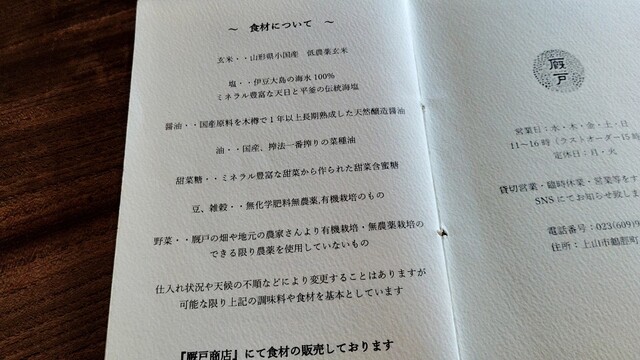 ～ 食材について ～
玄米・・山形県小国産 低農薬玄米
塩・・伊豆大島の海水100%
ミネラル豊富な天日と平釜の伝統海塩
醤油・・国産原料を木樽で1年以上長期熟成した天然醸造醤油
油・・国産、搾法一番搾りの菜種油
甜菜糖・・ミネラル豊富な甜菜から作られた甜菜含蜜糖
豆、雑穀・・無化学肥料無農薬,有機栽培のもの
野菜・・厩戸の畑や地元の農家さんより有機栽培・無農薬栽培の
できる限り農薬を使用していないもの
仕入れ状況や天候の不順などにより変更することはありますが
可能な限り上記の調味料や食材を基本としています
『厩戸商店』にて食材の販売しております
厩戸
営業日：水・木・金・土・日
11－16時（ラストオーダー15時
定休日：月・火
貸切営業・臨時休業・営業等をす
SNSにてお知らせ致しま
電話番号：023(609)9
住所：上山市鶴脛町